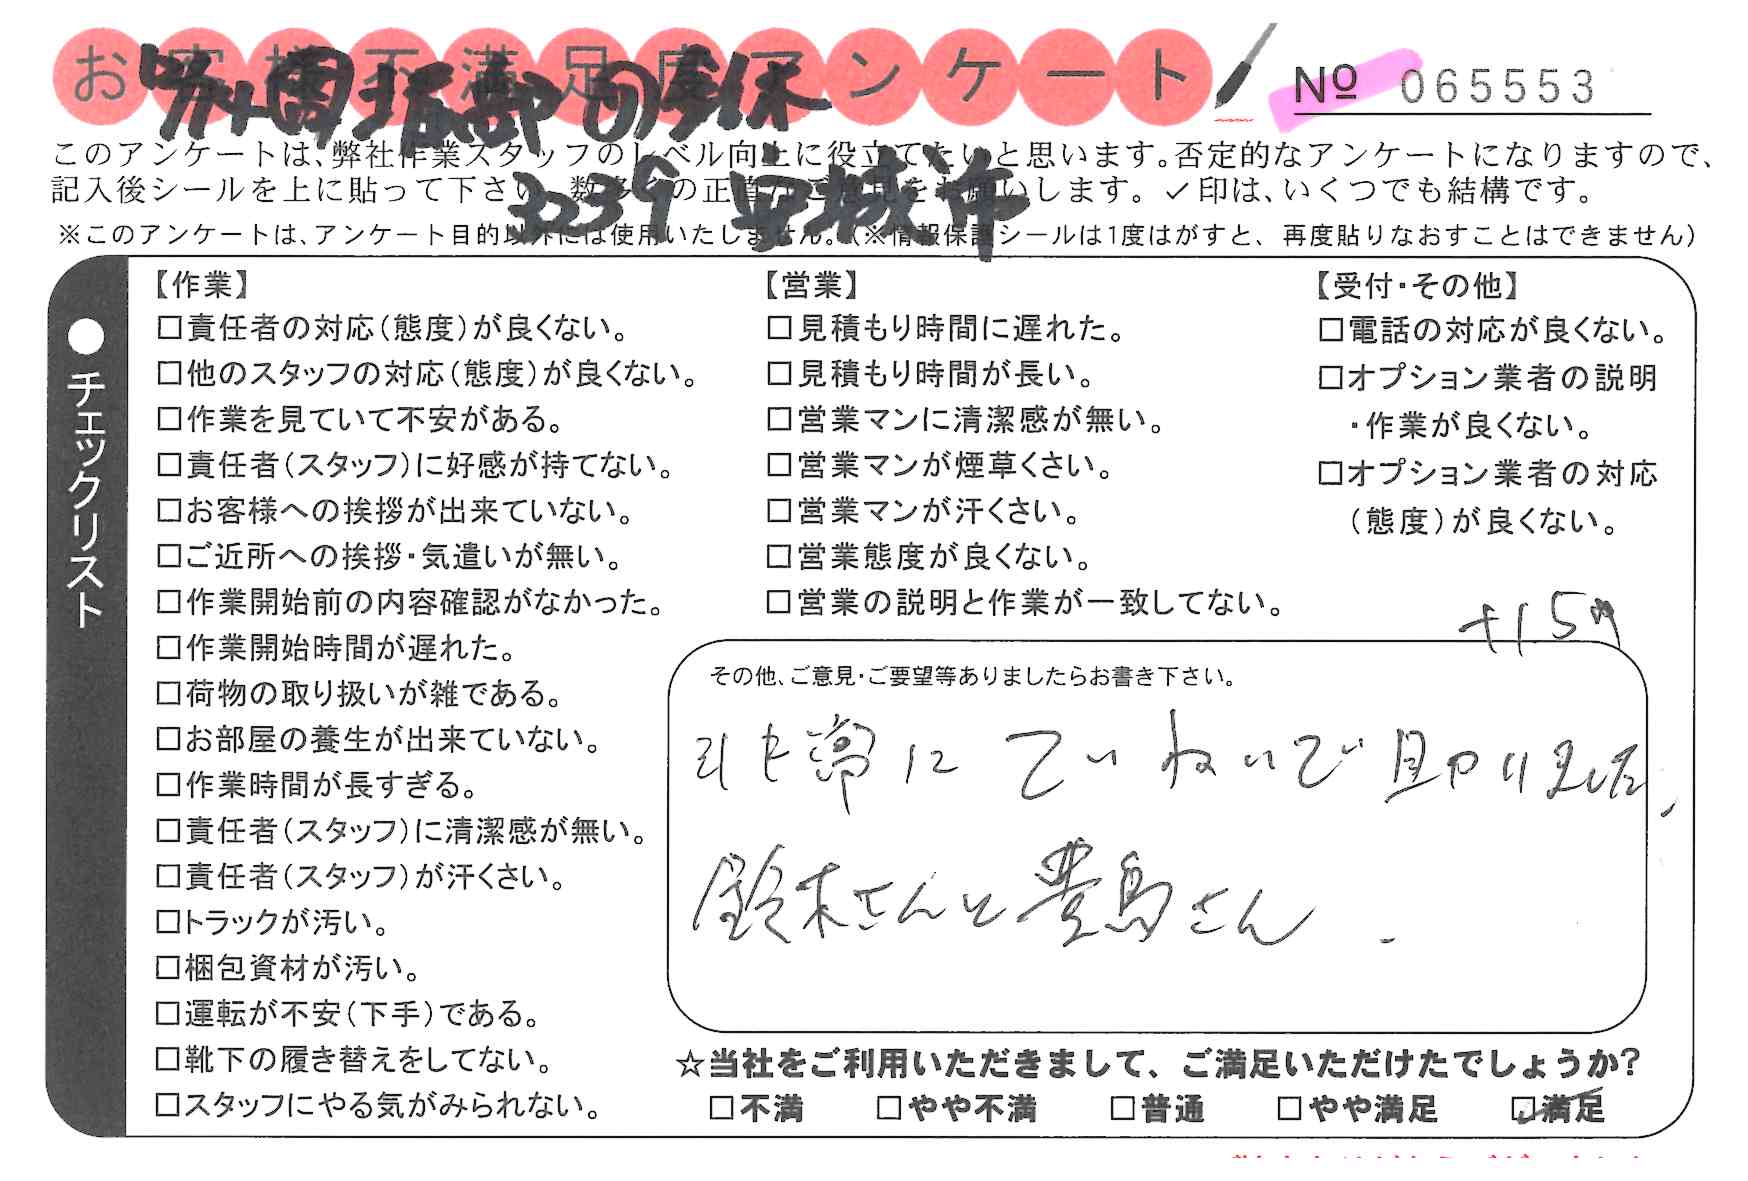 お客様不満足度アンケート
№ 065553
このアンケートは、弊社作業スタッフのレベル向上に役立てたいと思います。否定的なアンケートになりますので、
記入後シールを上に貼って下さい。数多くの正直なご意見をお願いします。✓印は、いくつでも結構です。
※このアンケートは、アンケート目的以外には使用いたしません。（※情報保護シールは1度はがすと、再度貼りなおすことはできません）
3239 安城市
●チェックリスト
【作業】
□責任者の対応（態度）が良くない。
□他のスタッフの対応（態度）が良くない。
□作業を見ていて不安がある。
□責任者（スタッフ）に好感が持てない。
□お客様への挨拶が出来ていない。
□ご近所への挨拶・気遣いが無い。
□作業開始前の内容確認がなかった。
□作業開始時間が遅れた。
□荷物の取り扱いが雑である。
□お部屋の養生が出来ていない。
□作業時間が長すぎる。
□責任者（スタッフ）に清潔感が無い。
□責任者（スタッフ）が汗くさい。
□トラックが汚い。
□梱包資材が汚い。
□運転が不安（下手）である。
□靴下の履き替えをしてない。
□スタッフにやる気がみられない。
【営業】
□見積もり時間に遅れた。
□見積もり時間が長い。
□営業マンに清潔感が無い。
□営業マンが煙草くさい。
□営業マンが汗くさい。
□営業態度が良くない。
□営業の説明と作業が一致してない。
【受付・その他】
□電話の対応が良くない。
□オプション業者の説明
・作業が良くない。
□オプション業者の対応
（態度）が良くない。
その他、ご意見・ご要望等ありましたらお書き下さい。
非常に ていねいで 助かりました、
鈴木さんと豊島さん．
☆当社をご利用いただきまして、ご満足いただけたでしょうか?
□不満 □やや不満 □普通 □やや満足 ☑満足